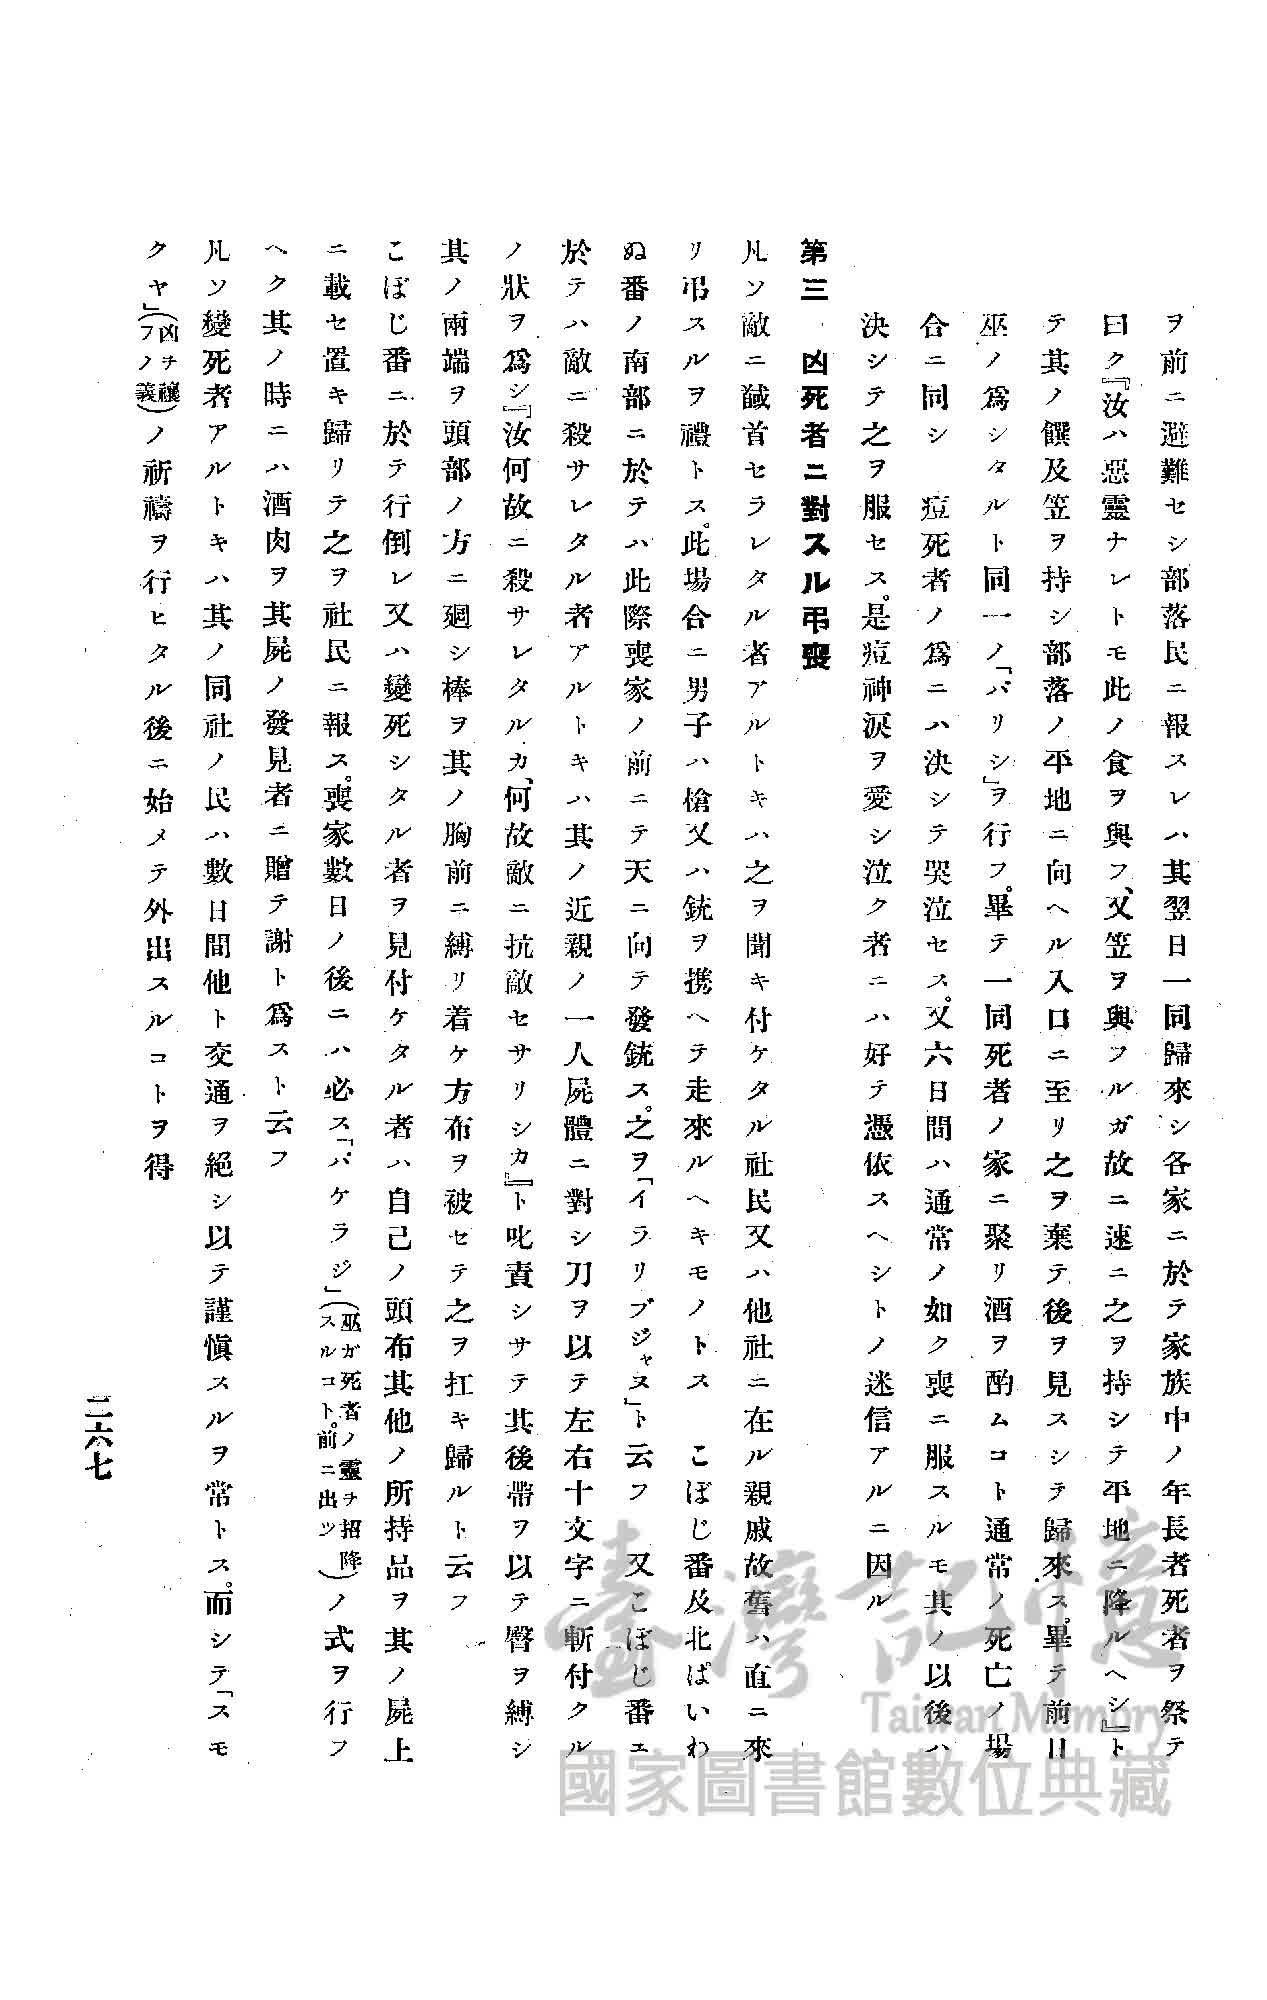 ヲ前ニ避難セシ部落民ニ報スレハ其翌日一同歸來シ各家ニ於テ家族中ノ年長者死者ヲ祭テ
曰ク『汝ハ惡靈ナレトモ此ノ食ヲ與フ、又笠ヲ與フルガ故ニ速ニ之ヲ持シテ平地ニ降ルヘシ』ト
テ其ノ饌及笠ヲ持シ部落ノ平地ニ向ヘル入口ニ至リ之ヲ棄テ後ヲ見スシテ歸來ス。畢テ前日
巫ノ爲シタルト同一ノ「バリシ」ヲ行フ。畢テ一同死者ノ家ニ聚リ酒ヲ酌ムコト通常ノ死亡ノ場
合ニ同シ 痘死者ノ爲ニハ決シテ哭泣セス。又六日間ハ通常ノ如ク喪ニ服スルモ其ノ以後ハ
決シテ之ヲ服セス。是痘神淚ヲ愛シ泣ク者ニハ好テ憑依スヘシトノ迷信アルニ因ル
第三 凶死者ニ對スル弔喪
凡ソ敵ニ馘首セラレタル者アルトキハ之ヲ聞キ付ケタル社民又ハ他社ニ在ル親戚故舊ハ直ニ來
リ弔スルヲ禮トス。此場合ニ男子ハ槍又ハ銃ヲ携ヘテ走來ルヘキモノトス こぼじ番及北ぱいわ
ぬ番ノ南部ニ於テハ此際喪家ノ前ニテ天ニ向テ發銃ス。之ヲ「イラリブジャヌ」ト云フ 又こぼじ番ニ
於テハ敵ニ殺サレタル者アルトキハ其ノ近親ノ一人屍體ニ對シ刀ヲ以テ左右十文字ニ斬付クル
ノ狀ヲ爲シ『汝何故ニ殺サレタルカ、何故敵ニ抗敵セサリシカ』ト叱責シサテ其後帶ヲ以テ臀ヲ縛シ
其ノ兩端ヲ頭部ノ方ニ廻シ棒ヲ其ノ胸前ニ縛リ着ケ方布ヲ被セテ之ヲ扛キ歸ルト云フ
こぼじ番ニ於テ行倒レ又ハ變死シタル者ヲ見付ケタル者ハ自己ノ頭布其他ノ所持品ヲ其ノ屍上
ニ載セ置キ歸リテ之ヲ社民ニ報ス。喪家數日ノ後ニハ必ス「バケラジ」(巫ガ死者ノ靈ヲ招降スルコト。前ニ出ツ)ノ式ヲ行フ
ヘク其ノ時ニハ酒肉ヲ其屍ノ發見者ニ贈テ謝ト爲スト云フ
凡ソ變死者アルトキハ其ノ同社ノ民ハ數日間他ト交通ヲ絕シ以テ謹愼スルヲ常トス。而シテ「スモ
クヤ」(凶ヲ禳フノ義)ノ祈禱ヲ行ヒタル後ニ始メテ外出スルコトヲ得
二六七
臺灣記憶
Taiwan Memory
國家圖書館數位典藏